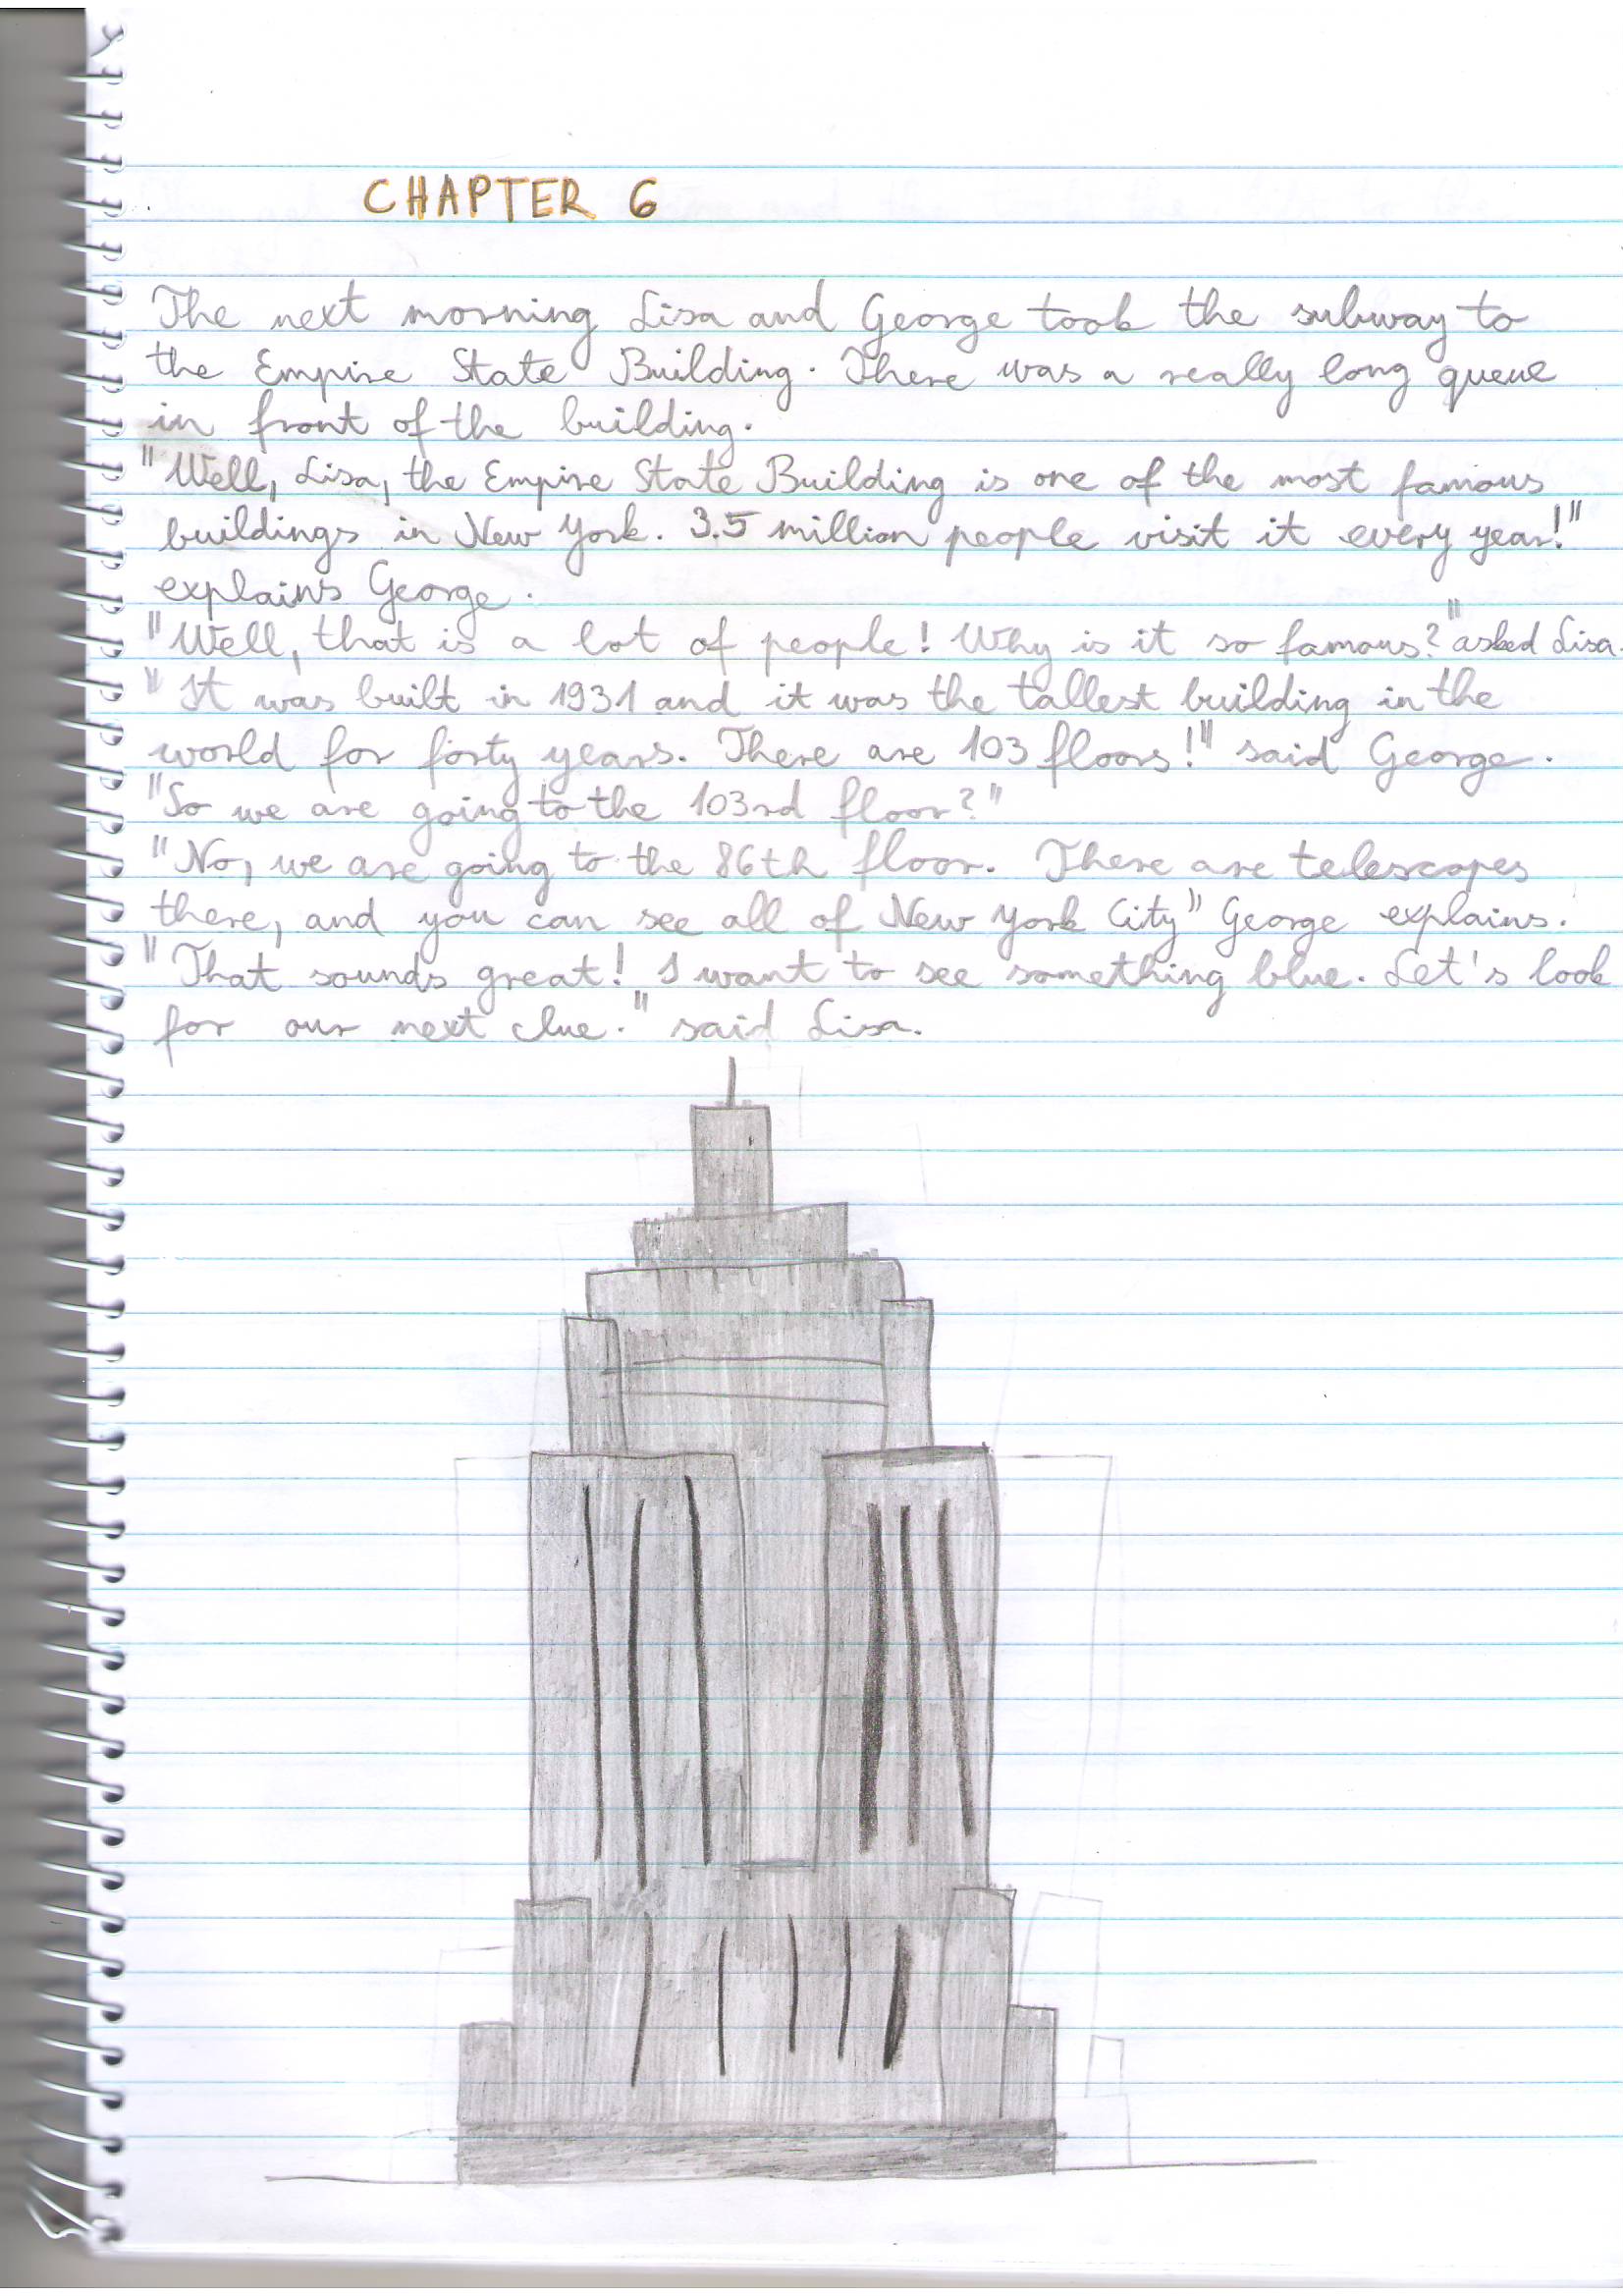 CHAPTER 6
The next morning Lisa and George took the subway to
the Empire State Building. There was a really long queue
in front of the building.
"Well, Lisa, the Empire State Building is one of the most famous
buildings in New York. 3.5 million people visit it every year!"
explains George.
"Well, that is a lot of people! Why is it so famous?" asked Lisa.
"It was built in 1931 and it was the tallest building in the
world for forty years. There are 103 floors!" said George.
"So we are going to the 103rd floor?"
"No, we are going to the 86th floor. There are telescopes
there, and you can see all of New York City" George explains.
"That sounds great! I want to see something blue. Let's look
for our next clue." said Lisa.